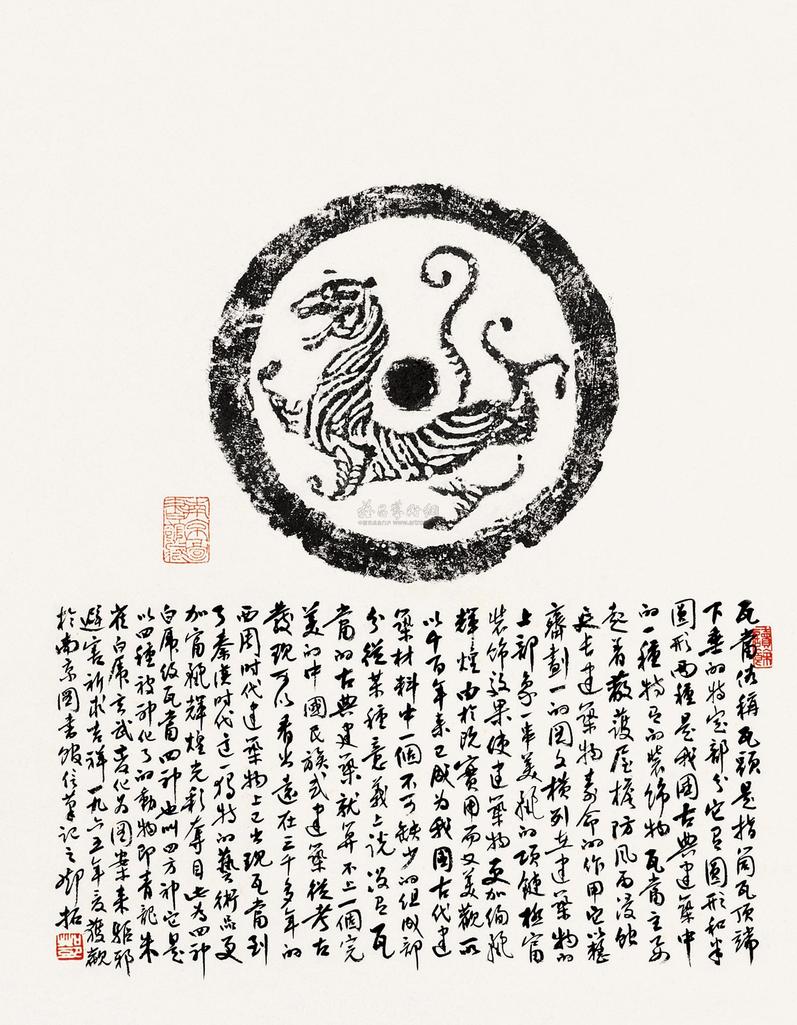 瓦當俗稱瓦頭是指筒瓦頂端
下垂的特定部分它有圓形和半
圓形兩種是我國古典建築中
的一種特有的裝飾物瓦當主要
起着蔽護屋檐防風雨浸蝕
延長建築物壽命的作用它以整
齊劃一的圖文橫列在建築物的
上部象一串美麗的項鏈極富
裝飾效果使建築物更加絢麗
輝煌由於既實用而又美觀所
以千百年來已成為我國古代建
築材料中一個不可缺少的組成部
分從某種意義上說沒有瓦
當的古典建築就算不上一個完
美的中國民族式建築從考古
發現可以看出遠在三千多年的
西周時代建築物上已出現瓦當到
了秦漢時代這一獨特的藝術品更
加富麗輝煌光彩奪目此為四神
白虎紋瓦當四神也叫四方神它是
以四種被神化了的動物即青龍朱
雀白虎玄武變化為圖案來驅邪
避害祈求吉祥一九六五年夜獲觀
於南京圖書館信筆記之鄧拓